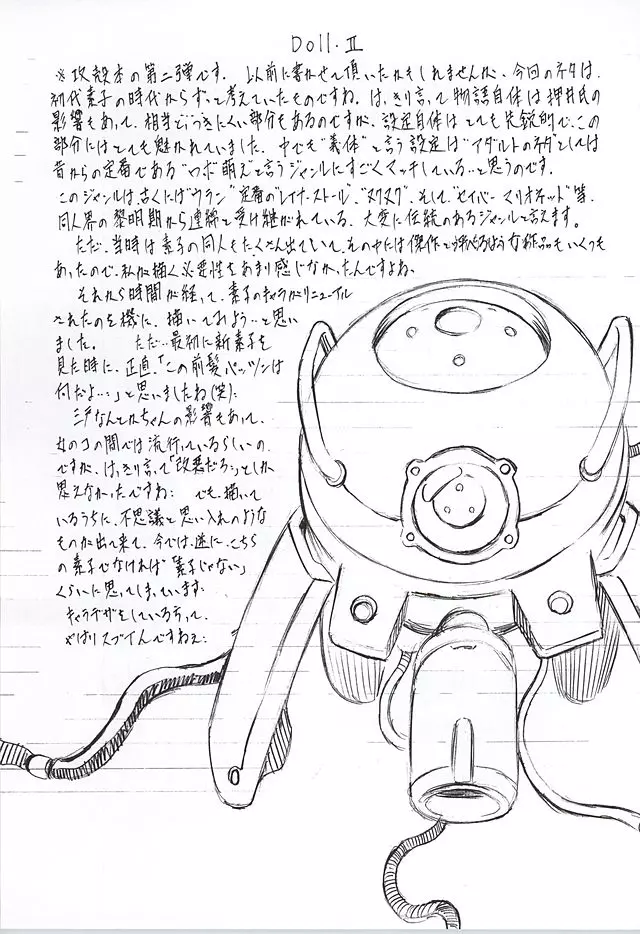 Doll.Ⅱ
※攻殻本の第二弾です。以前に書かせて頂いたかもしれませんが、今回のネタは、
初代素子の時代からずっと考えていたものですね。はっきり言って物語自体は押井氏の
影響もあって、相当とっつきにくい部分もあるのですが、設定自体はとても先鋭的で、この
部分にはとても魅かれていました。中でも"義体"と言う設定は"アダルトのネタ"としては
昔からの定番である"ロボ萌え"と言うジャンルにすごくマッチしている…と思うのです。
このジャンルは、古くは"ウラン"定番の"レイナ・ストール"、"ヌクヌク"、そして、"セイバーマリオネット"等、
同人界の黎明期から連綿と受け継がれている、大変に伝統のあるジャンルと言えます。
ただ、当時は素子の同人もたくさん出ていて、その中には傑作と呼べるような作品もいくつも
あったので、私が描く必要性をあまり感じなかったんですよね。
それから時間が経って、素子のキャラがリニューアル
されたのを機に、描いてみよう…と思い
ました。ただ…最初に新素子を
見た時に、正直、「この前髪パッツンは
何だよ…」と思いましたね(笑)…
三戸なんとかちゃんの影響もあって、
女のコの間では流行っているらしいの
ですが、はっきり言って「改悪だろ…」としか
思えなかったですね… でも、描いて
いるうちに、不思議と思い入れのような
ものが出て来て、今では、逆に、こちら
の素子でなければ「素子じゃない」
くらいに思ってしまっています…
キャラデザをしている方って、
やはりスゴイんですねぇ…